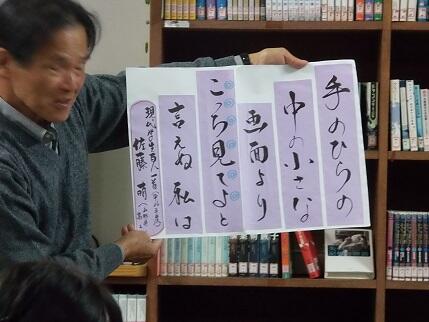 手のひらの
中の小さな
画面より
こっち見てよと
言えぬ私は
現代学生百人一首
佐藤 萌